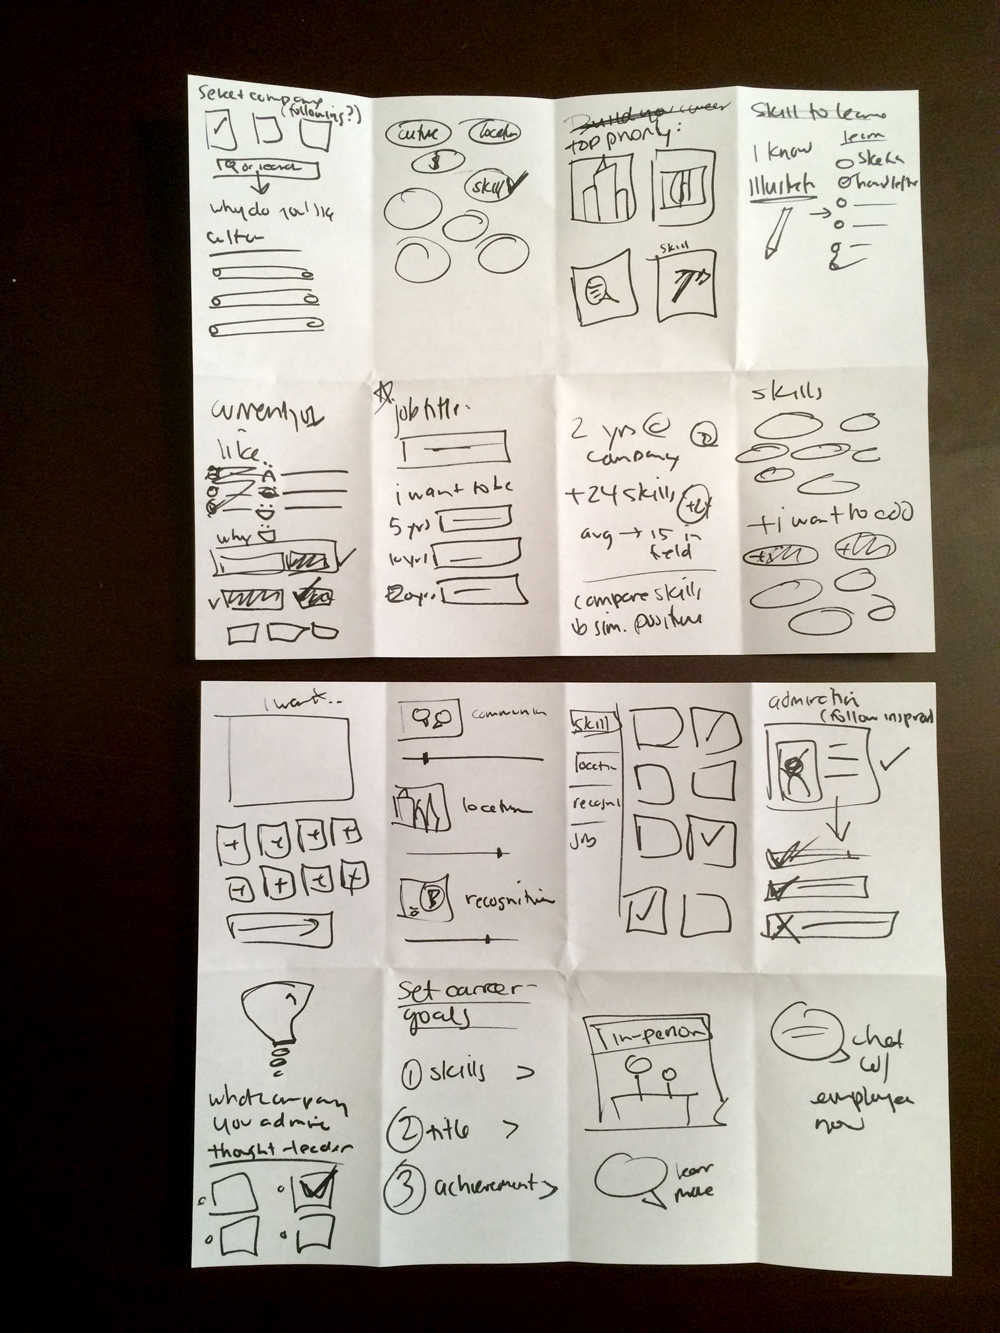 select company
(following?)
or search
why do you like
culture
culture
location
$
skill
Build yo career
top priority:
skill
Skill to learn
I know
illustrat
learn
sketch
currently
like
why
job title:
i want to be
5 yrs
10 yrs
20 yrs
2 yrs @
company
+24 skills
+24
avg → 15 in
field
compare skills
sim. position
skills
+ i want to add
i want...
location
recognition
skill
location
job
admiration
(follow inspirat
what company
you admire
thought-leader
set career
goals
1 skills >
2 title >
3 achievement >
in-person
learn
more
chat
w/
employee
now